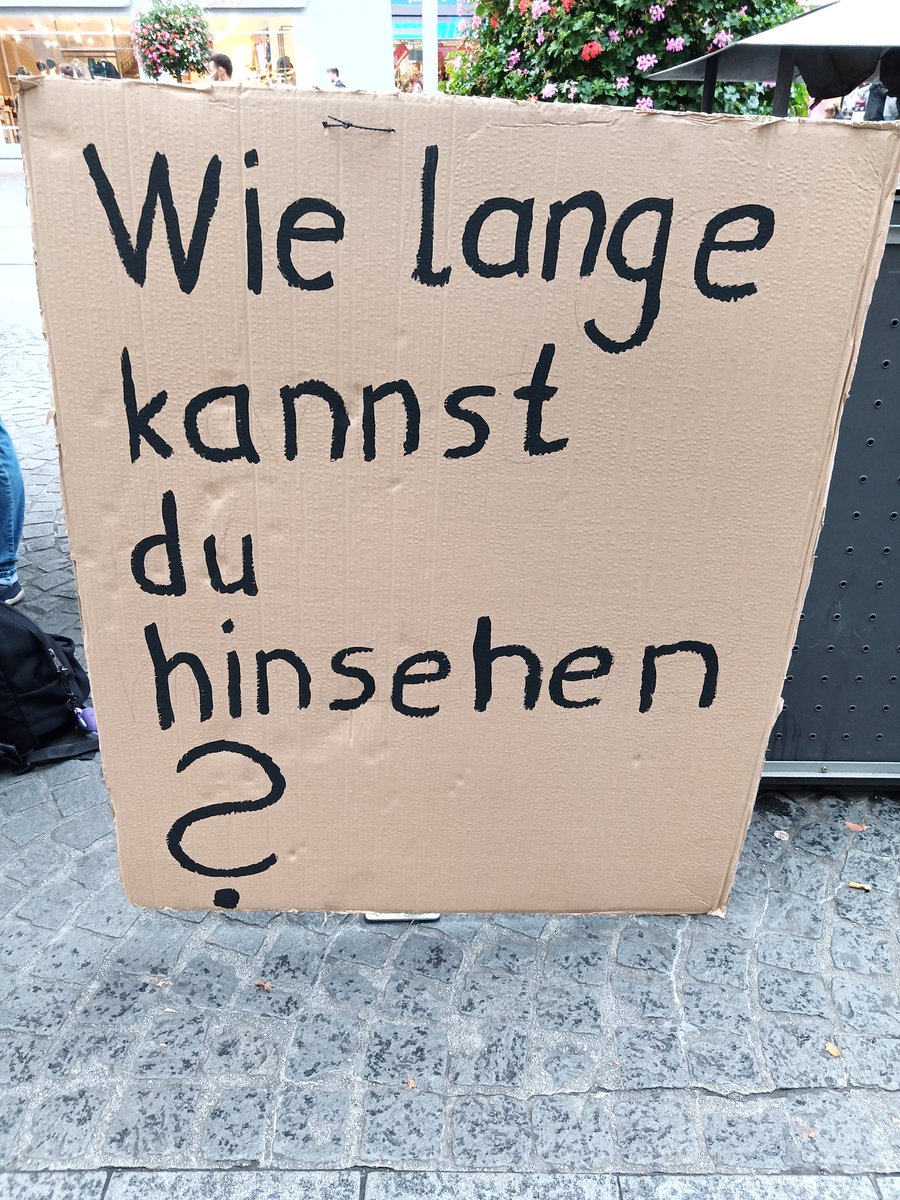 Wie lange
kannst
du
hinsehen
?